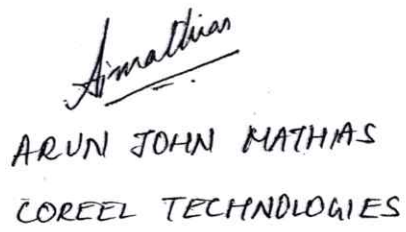 Ajmathias
ARUN JOHN MATHIAS
COREEL TECHNOLOGIES